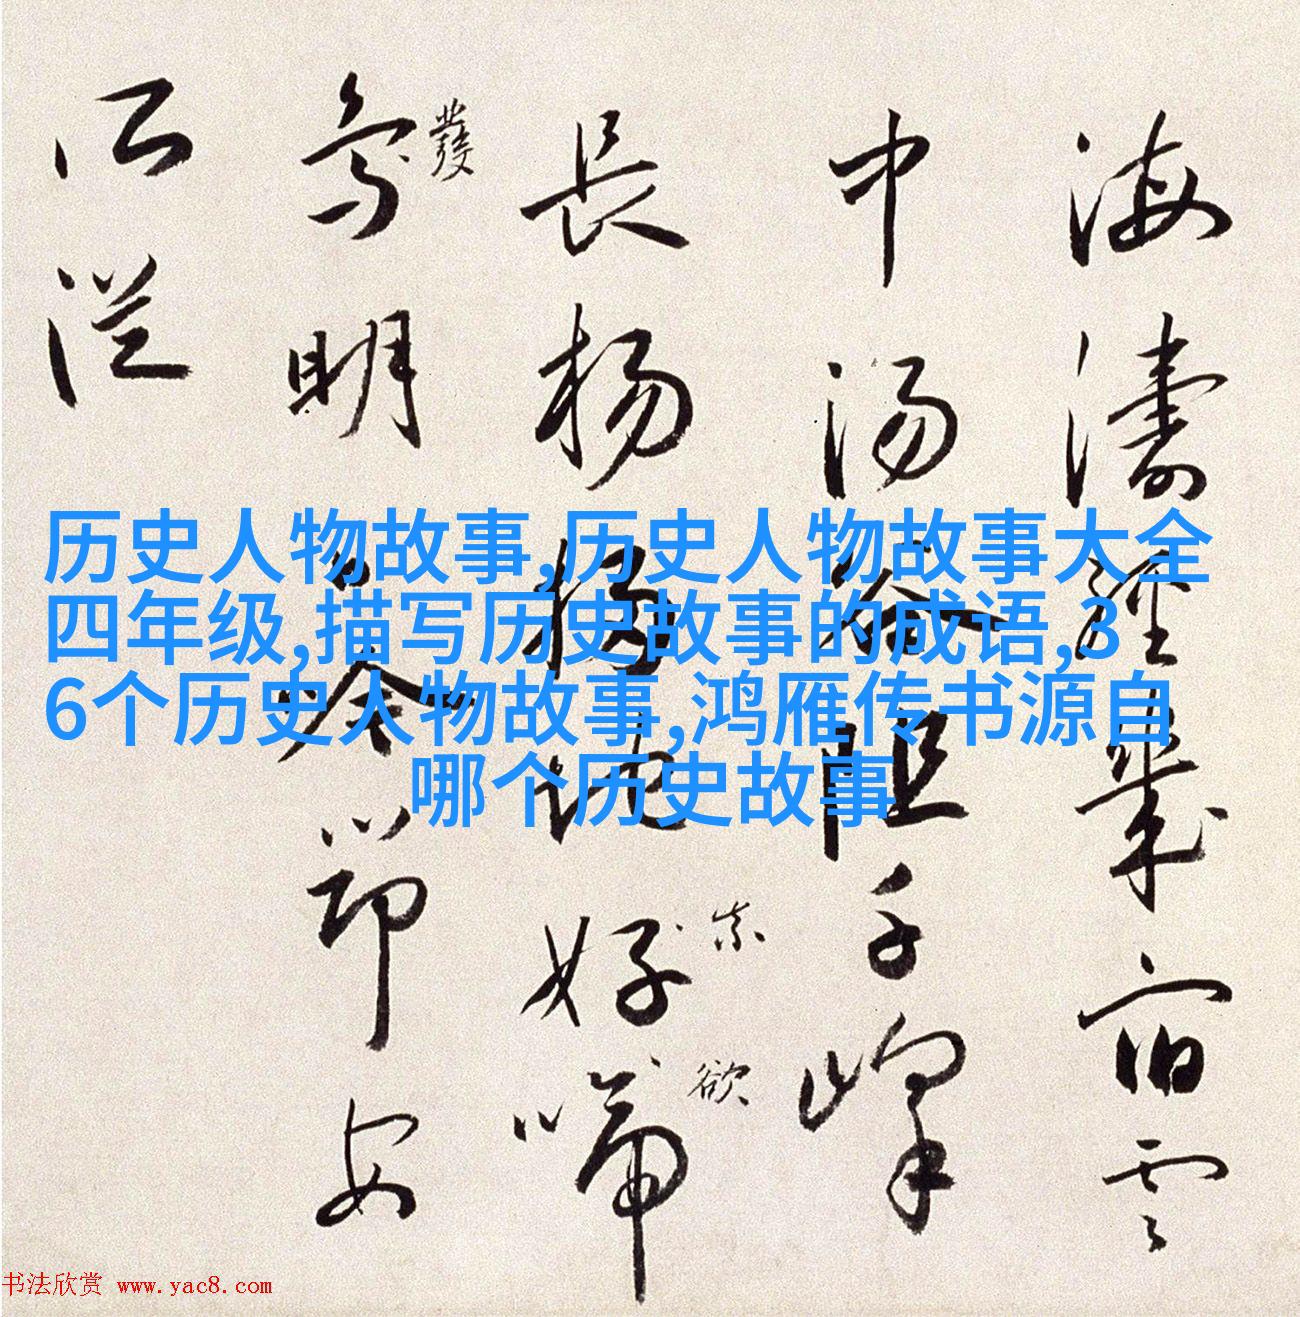 历史人物故事,历史人物故事大全
四年级,描写历史故事的成语,3
6个历史人物故事,鸿雁传书源自
哪个历史故事
海濤 宿雲
中湯谷阻千峰
長楊 好啼
欲
鳥明 安
發
书法欣赏 www.yac8.com